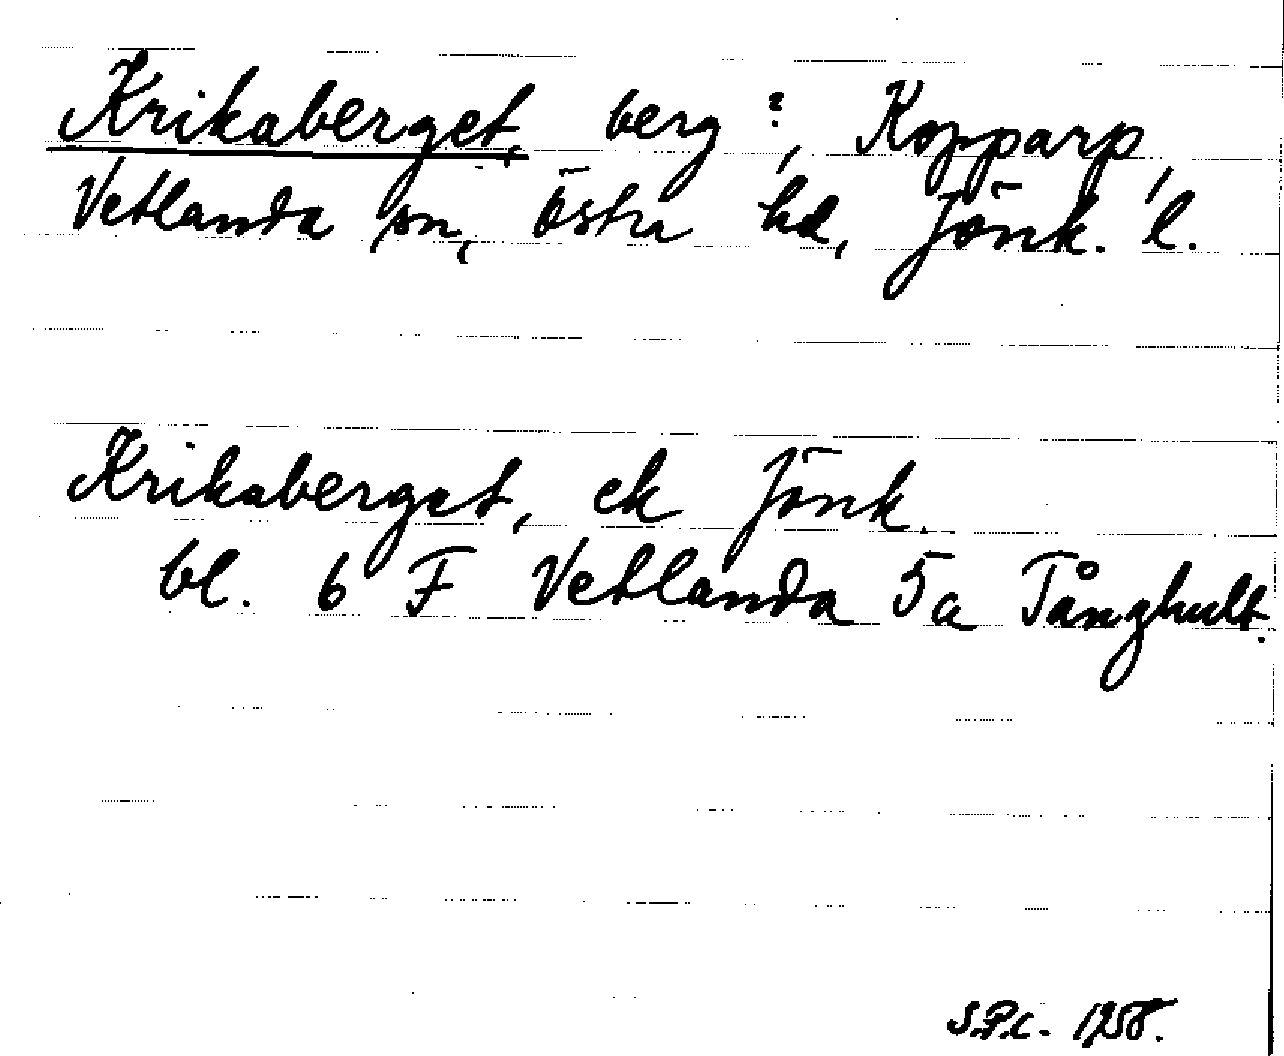 Krikaberget, berg?, Kopparp,
Vetlanda sn, Östra hd, Jönk. l.
Krikaberget, ek Jönk.
bl. 6 F Vetlanda 5a Tånghult.
S.P.C. 1958.